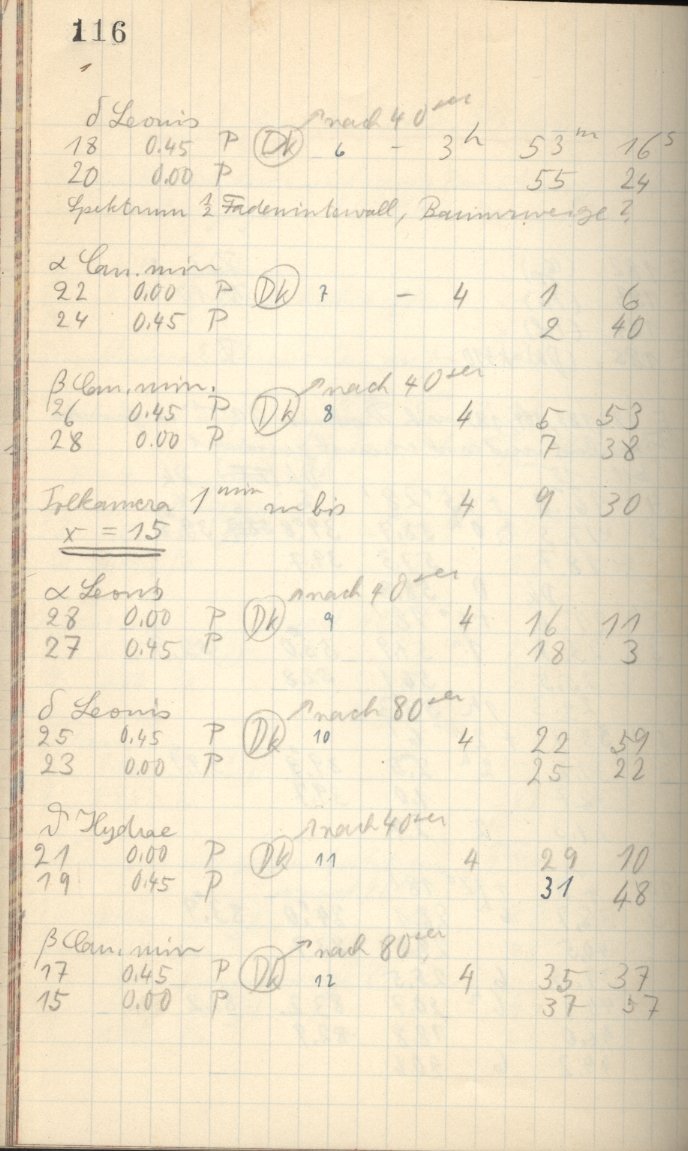 116
δ Leonis nach 40 sec
18 0.45 P Dk 6 - 3h 53m 16s
20 0.00 P 55 24
Spektrum 1/2 Fadenintervall, Baumzweige?
α Can. min
22 0.00 P Dk 7 - 4 1 6
24 0.45 P 2 40
β Can. min. nach 40 sec
26 0.45 P Dk 8 4 5 53
28 0.00 P 7 38
1 min bis 4 9 30
x = 15
α Leonis nach 40 sec
28 0.00 P Dk 9 4 16 11
27 0.45 P 18 3
δ Leonis nach 80 sec
25 0.45 P Dk 10 4 22 59
23 0.00 P 25 22
ϑ Hydrae nach 40 sec
21 0.00 P Dk 11 4 29 10
19 0.45 P 31 48
β Can. min nach 80 sec
17 0.45 P Dk 12 4 35 37
15 0.00 P 37 57